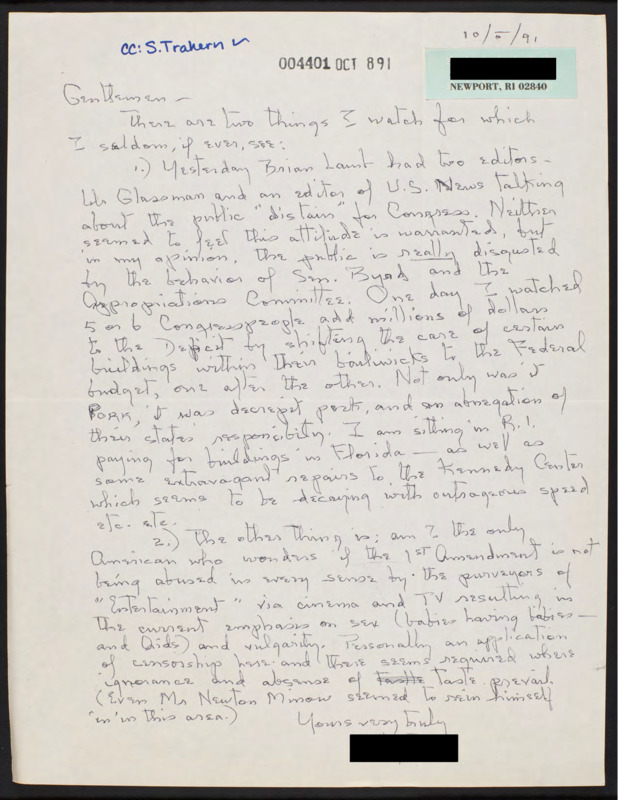 cc: S. Trahern
10/5/91
004401 OCT 891
NEWPORT, RI 02840
Gentlemen –
There are two things I watch for which
I seldom, if ever, see:
1.) Yesterday Brian Lamb had two editors –
Mr Glassman and an editor of U.S. News talking
about the public "distain" for Congress. Neither
seemed to feel this attitude is warranted, but
in my opinion, the public is really disgusted
by the behavior of Sen. Byrd and the
Appropriations Committee. One day I watched
5 or 6 Congresspeople add millions of dollars
to the Deficit by shifting the care of certain
buildings within their bailiwicks to the Federal
budget, one after the other. Not only was it
PORK, it was decrepit pork, and an abnegation of
their states responsibility. I am sitting in R.I.
paying for buildings in Florida – as well as
some extravagant repairs to the Kennedy Center
which seems to be decaying with outrageous speed
etc. etc.
2.) The other thing is; am I the only
American who wonders if the 1st Amendment is not
being abused in every sense by the purveyors of
"Entertainment" via cinema and TV resulting in
the current emphasis on sex (babies having babies –
and Aids) and vulgarity. Personally an application
of censorship here and there seems required where
ignorance and absence of taste prevail.
(Even Mr Newton Minow seemed to rein himself
'in' in this area.)
Yours very truly